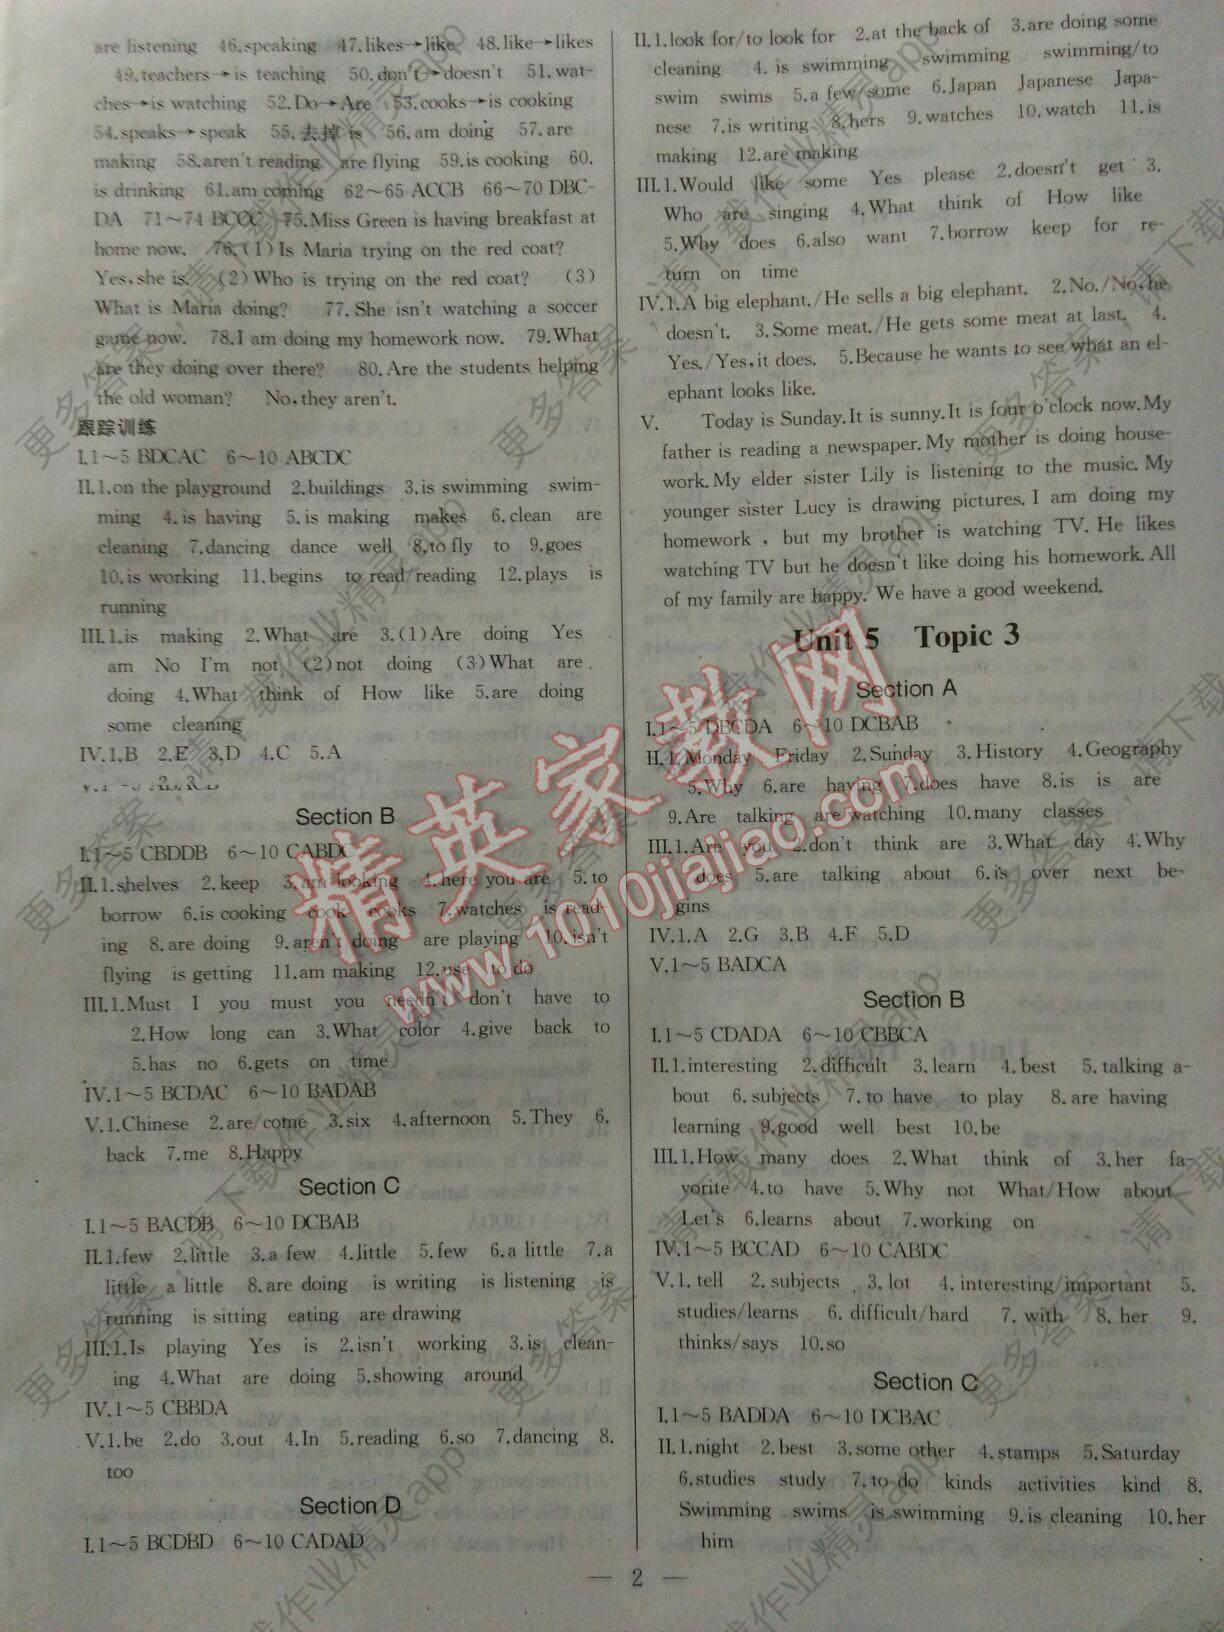 are listening 46.speaking 47.likes→like 48.like→likes
49.teachers→is teaching 50.don't→doesn't 51.wat-
ches→is watching 52.Do→Are 53.cooks→is cooking
54.speaks→speak 55.去掉 is 56.am doing 57.are
making 58.aren't reading are flying 59.is cooking 60.
is drinking 61.am coming 62～65 ACCB 66～70 DBC-
DA 71～74 BCCC 75.Miss Green is having breakfast at
home now. 76.(1)Is Maria trying on the red coat?
Yes,she is. (2)Who is trying on the red coat? (3)
What is Maria doing? 77.She isn't watching a soccer
game now. 78.I am doing my homework now. 79.What
are they doing over there? 80.Are the students helping
the old woman? No,they aren't.
跟踪训练
Ⅰ.1～5 BDCAC 6～10 ABCDC
Ⅱ.1.on the playground 2.buildings 3.is swimming swim-
ming 4.is having 5.is making makes 6.clean are
cleaning 7.dancing dance well 8.to fly to 9.goes
10.is working 11.begins to read/reading 12.plays is
running
Ⅲ.1.is making 2.What are 3.(1)Are doing Yes
am No I'm not (2)not doing (3)What are
doing 4.What think of How like 5.are doing
some cleaning
Ⅳ.1.B 2.E 3.D 4.C 5.A
Section B
Ⅰ.1～5 CBDDB 6～10 CABDC
Ⅱ.1.shelves 2.keep 3.am looking 4.here you are 5.to
borrow 6.is cooking cook cooks 7.watches is read-
ing 8.are doing 9.aren't doing are playing 10.isn't
flying is getting 11.am making 12.use to do
Ⅲ.1.Must I you must you needn't don't have to
2.How long can 3.What color 4.give back to
5.has no 6.gets on time
Ⅳ.1～5 BCDAC 6～10 BADAB
Ⅴ.1.Chinese 2.are/come 3.six 4.afternoon 5.They 6.
back 7.me 8.Happy
Section C
Ⅰ.1～5 BACDB 6～10 DCBAB
Ⅱ.1.few 2.little 3.a few 4.little 5.few 6.a little 7.a
little a little 8.are doing is writing is listening is
running is sitting eating are drawing
Ⅲ.1.Is playing Yes is 2.isn't working 3.is clean-
ing 4.What are doing 5.showing around
Ⅳ.1～5 CBBDA
Ⅴ.1.be 2.do 3.out 4.In 5.reading 6.so 7.dancing 8.
too
Section D
Ⅰ.1～5 BCDBD 6～10 CADAD
Ⅱ.1.look for/to look for 2.at the back of 3.are doing some
cleaning 4.is swimming swimming swimming/to
swim swims 5.a few/some 6.Japan Japanese Japa-
nese 7.is writing 8.hers 9.watches 10.watch 11.is
making 12.are making
Ⅲ.1.Would like some Yes please 2.doesn't get 3.
Who are singing 4.What think of How like
5.Why does 6.also want 7.borrow keep for re-
turn on time
Ⅳ.1.A big elephant./He sells a big elephant. 2.No./No,he
doesn't. 3.Some meat./He gets some meat at last. 4.
Yes./Yes,it does. 5.Because he wants to see what an el-
ephant looks like.
Ⅴ. Today is Sunday.It is sunny.It is four o'clock now.My
father is reading a newspaper.My mother is doing house-
work.My elder sister Lily is listening to the music. My
younger sister Lucy is drawing pictures. I am doing my
homework , but my brother is watching TV. He likes
watching TV but he doesn't like doing his homework. All
of my family are happy. We have a good weekend.
Unit 5 Topic 3
Section A
Ⅰ.1～5 DBCDA 6～10 DCBAB
Ⅱ.1.Monday Friday 2.Sunday 3.History 4.Geography
5.Why 6.are having 7.does have 8.is is are
9.Are talking are watching 10.many classes
Ⅲ.1.Are you 2.don't think are 3.What day 4.Why
does 5.are talking about 6.is over next be-
gins
Ⅳ.1.A 2.G 3.B 4.F 5.D
Ⅴ.1～5 BADCA
Section B
Ⅰ.1～5 CDADA 6～10 CBBCA
Ⅱ.1.interesting 2.difficult 3.learn 4.best 5.talking a-
bout 6.subjects 7.to have to play 8.are having
learning 9.good well best 10.be
Ⅲ.1.How many does 2.What think of 3.her fa-
vorite 4.to have 5.Why not What/How about
Let's 6.learns about 7.working on
Ⅳ.1～5 BCCAD 6～10 CABDC
Ⅴ.1.tell 2.subjects 3.lot 4.interesting/important 5.
studies/learns 6.difficult/hard 7.with 8.her 9.
thinks/says 10.so
Section C
Ⅰ.1～5 BADDA 6～10 DCBAC
Ⅱ.1.night 2.best 3.some other 4.stamps 5.Saturday
6.studies study 7.to do kinds activities kind 8.
Swimming swims is swimming 9.is cleaning 10.her
him
— 2 —
精英家教网
www.1010jiajiao.com
更多答案，请下载作业精灵app